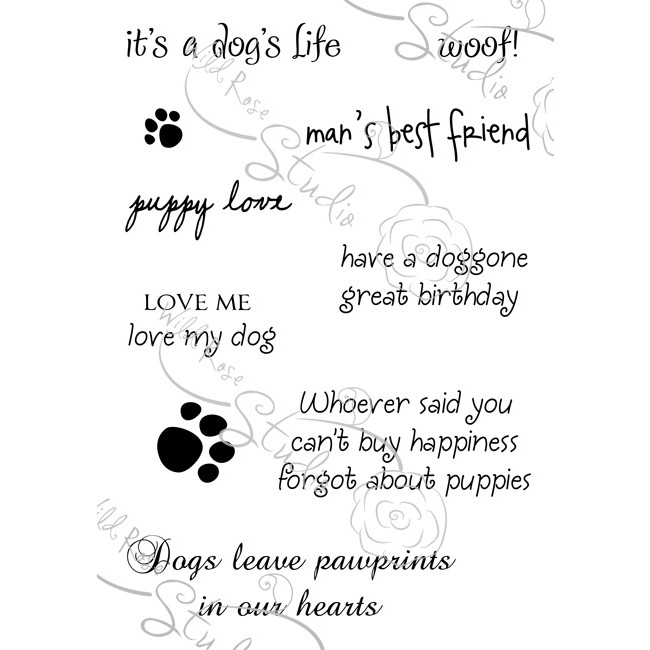 it's a dog's life
woof!
man's best friend
puppy love
have a doggone
great birthday
LOVE ME
love my dog
Whoever said you
can't buy happiness
forgot about puppies
Dogs leave pawprints
in our hearts
Wild Rose
Studio
Wild Rose
Studio
Wild Rose
Studio
Studio